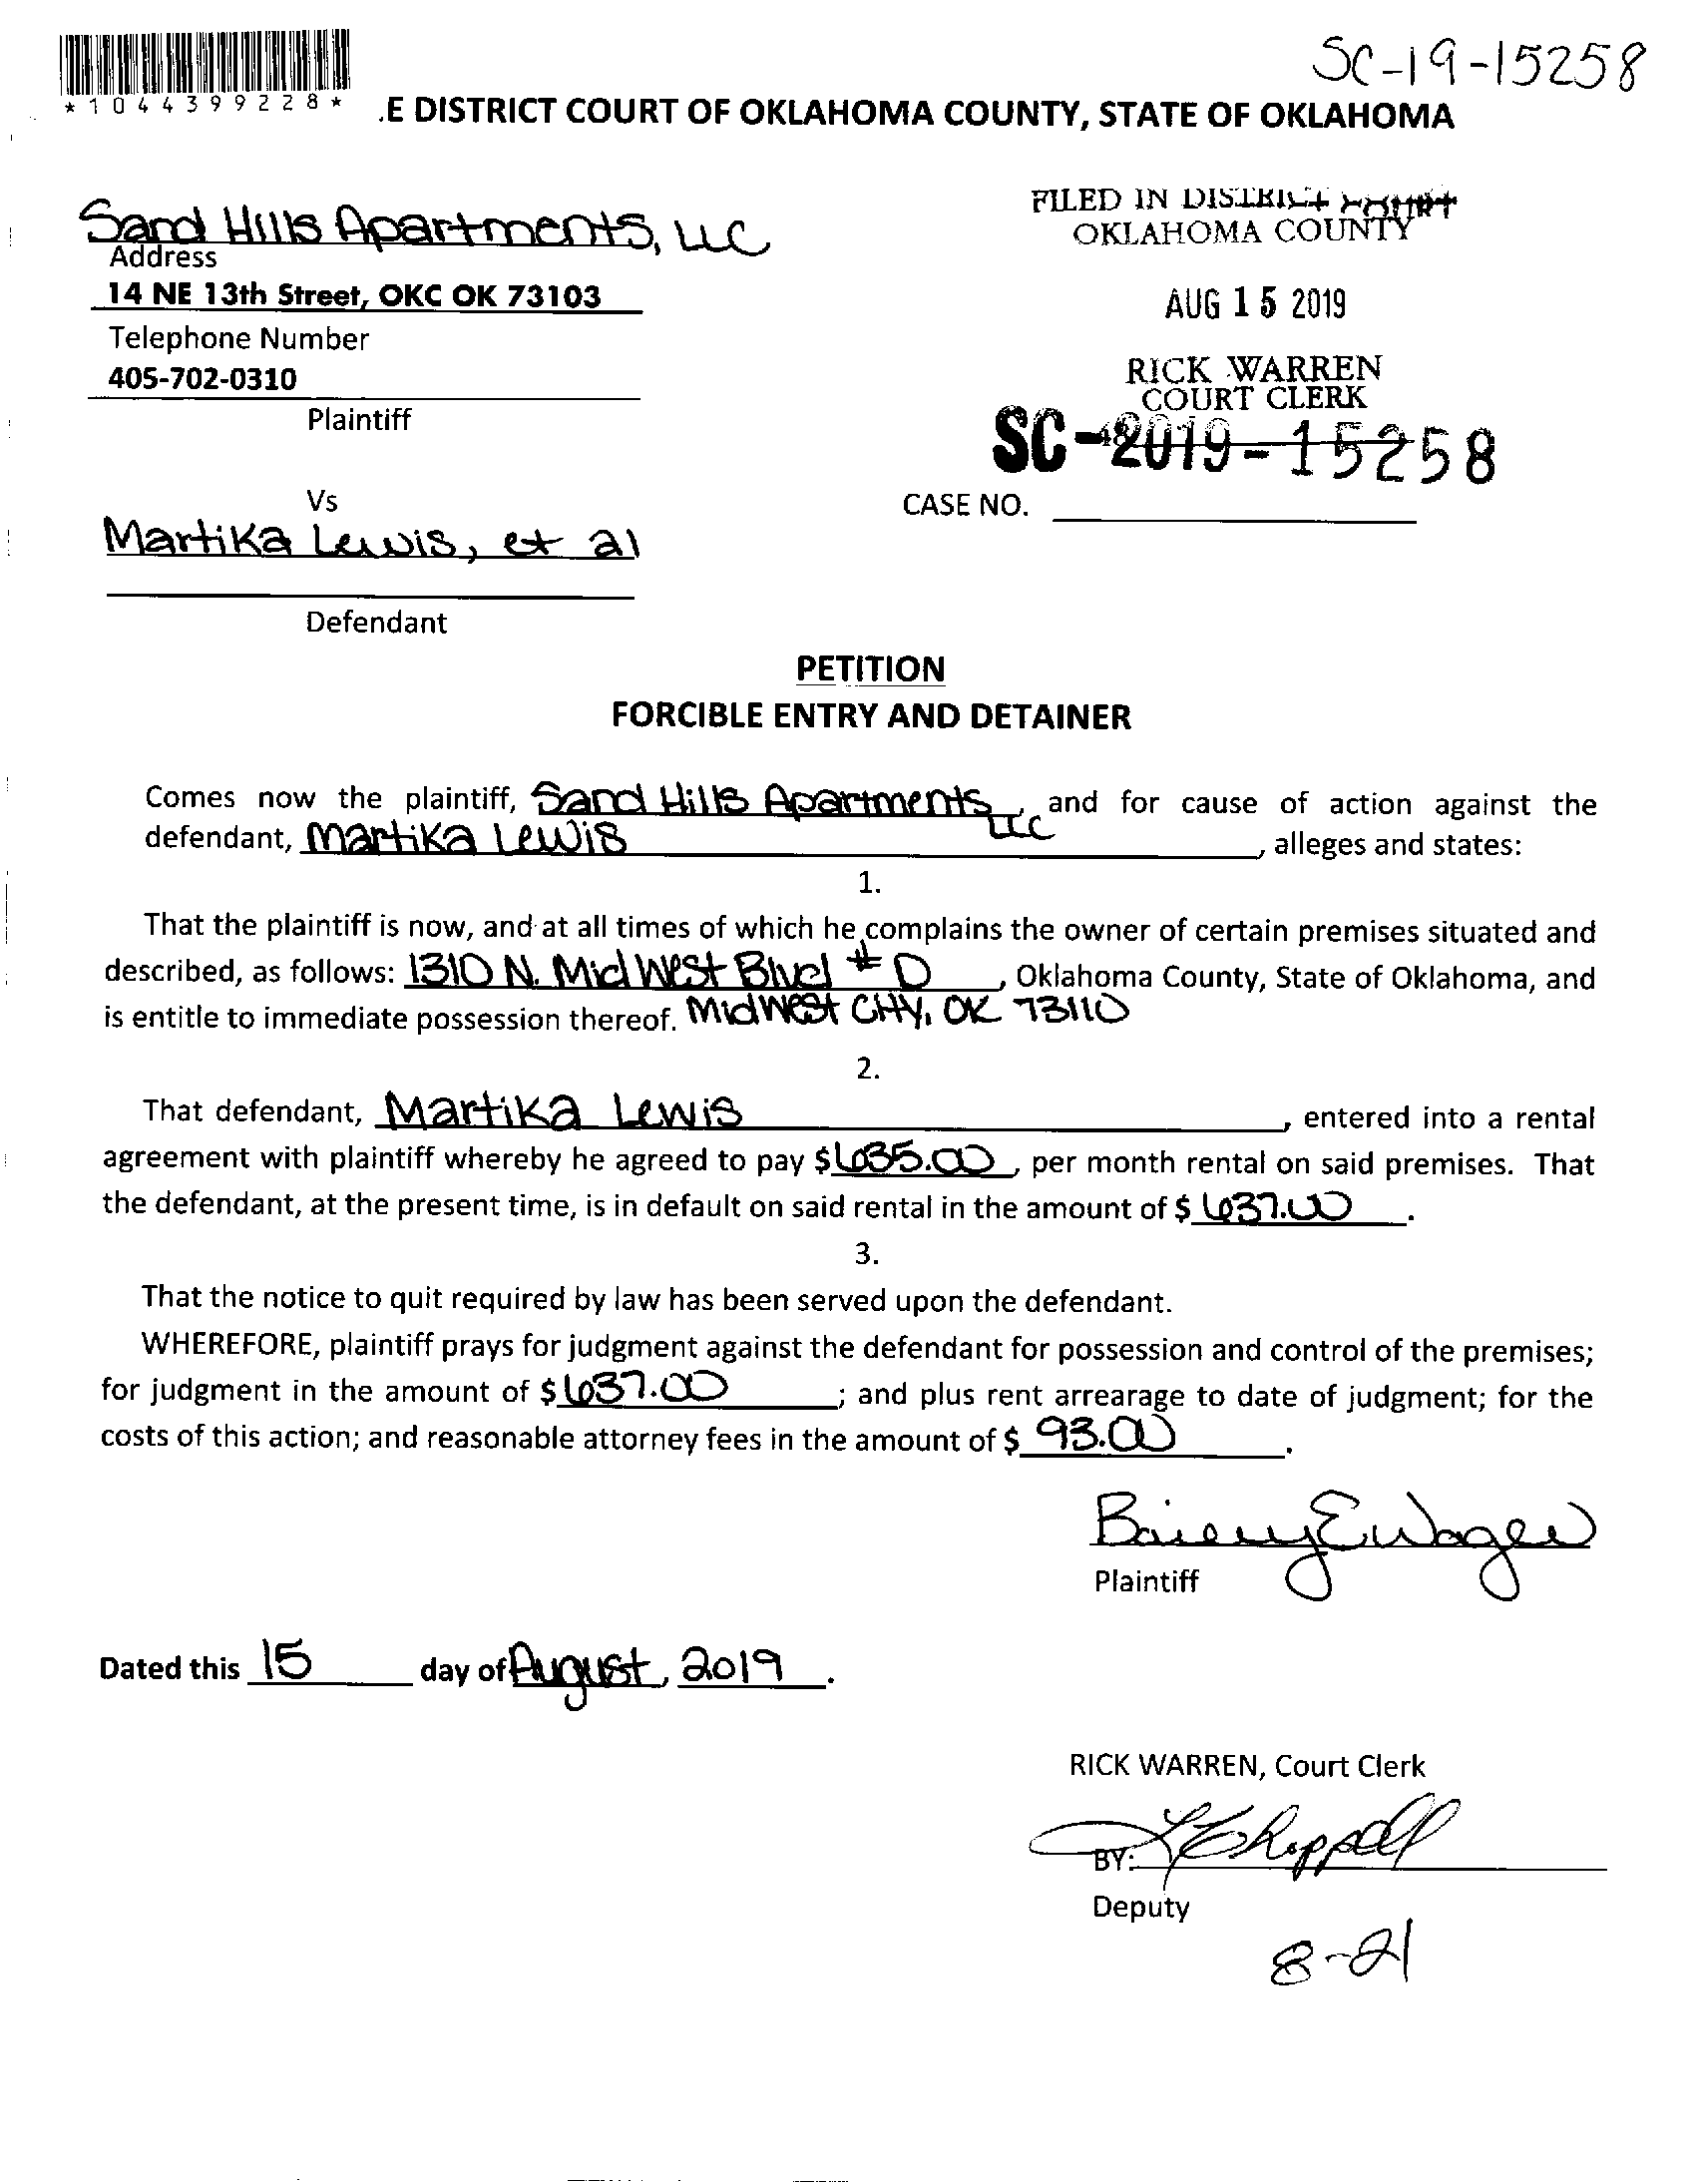 SC-19-15258
*1044399228*
.E DISTRICT COURT OF OKLAHOMA COUNTY, STATE OF OKLAHOMA
Sand Hills Apartments, LLC
Address
14 NE 13th Street, OKC OK 73103
Telephone Number
405-702-0310
Plaintiff
FILED IN DISTRICT COURT
OKLAHOMA COUNTY
AUG 15 2019
RICK WARREN
COURT CLERK
SC-2019-15258
CASE NO.
Vs
Martika Lewis, et al
Defendant
PETITION
FORCIBLE ENTRY AND DETAINER
Comes now the plaintiff, Sand Hills Apartments, LLC and for cause of action against the
defendant, Martika Lewis, alleges and states:
1.
That the plaintiff is now, and at all times of which he complains the owner of certain premises situated and
described, as follows: 1310 N. Midwest Blvd # D, Oklahoma County, State of Oklahoma, and
is entitle to immediate possession thereof. Midwest City, OK 73110
2.
That defendant, Martika Lewis, entered into a rental
agreement with plaintiff whereby he agreed to pay $635.00, per month rental on said premises. That
the defendant, at the present time, is in default on said rental in the amount of $637.00.
3.
That the notice to quit required by law has been served upon the defendant.
WHEREFORE, plaintiff prays for judgment against the defendant for possession and control of the premises;
for judgment in the amount of $637.00; and plus rent arrearage to date of judgment; for the
costs of this action; and reasonable attorney fees in the amount of $93.00.
Plaintiff
Dated this 15 day of August, 2019.
RICK WARREN, Court Clerk
BY:
Deputy
8-21